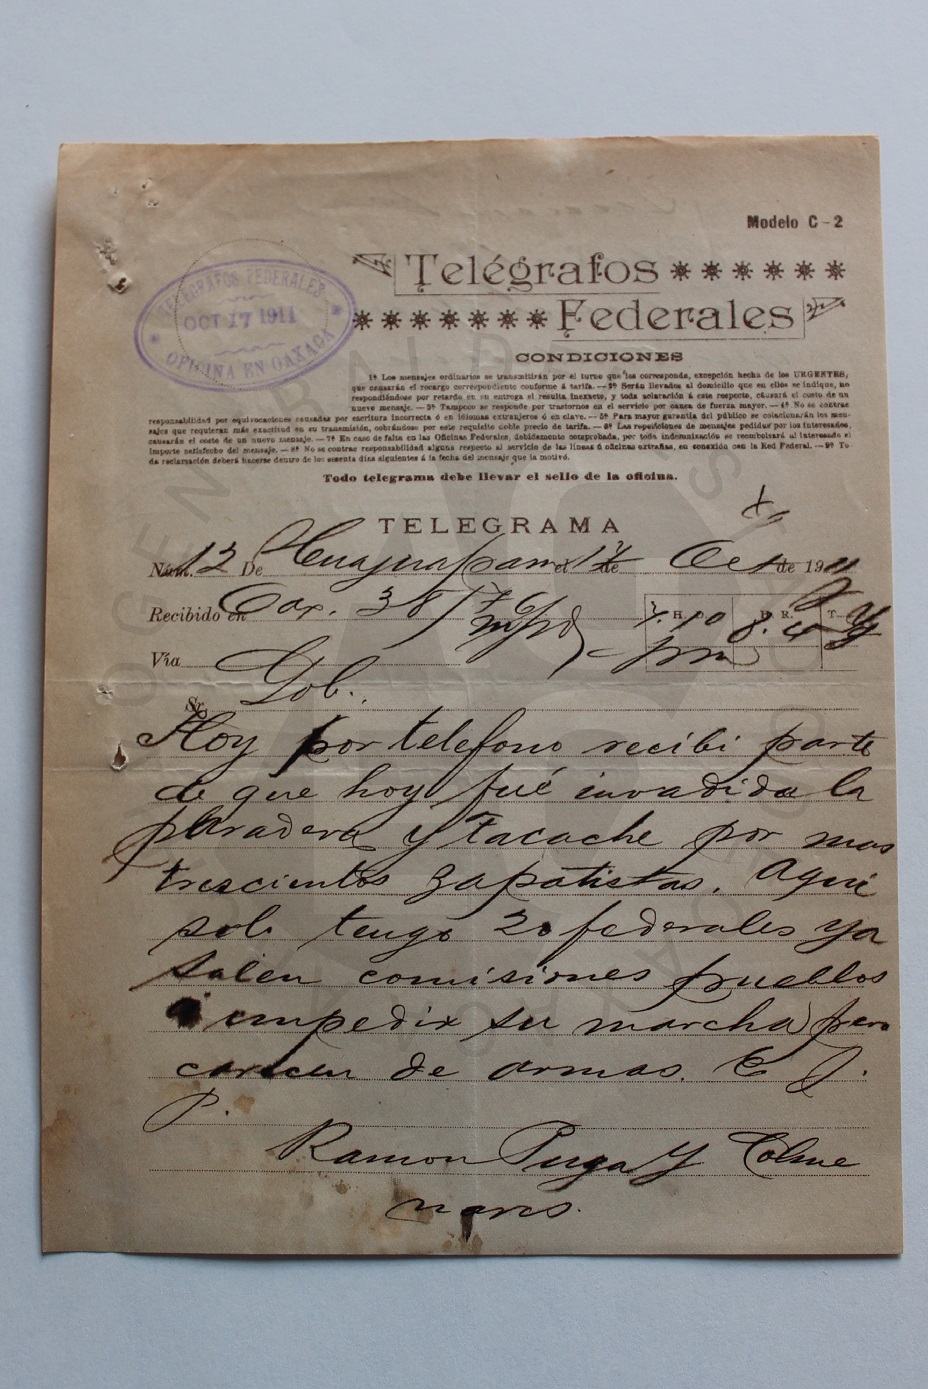 Modelo C-2
Telégrafos
Federales
TELEGRAFOS FEDERALES
OCT 17 1911
OFICINA EN OAXACA
CONDICIONES
1ª Los mensajes ordinarios se transmitirán por el turno que les corresponda, excepción hecha de los URGENTES,
que causarán el recargo correspondiente conforme á tarifa.—2ª Serán llevados al domicilio que en ellos se indique, no
respondiéndose por retardo en su entrega si resulta inexacto, y toda aclaración á este respecto, causará el costo de un
nuevo mensaje.—3ª Tampoco se responde por trastornos en el servicio por causa de fuerza mayor.—4ª No se contrae
responsabilidad por equivocaciones causadas por escritura incorrecta ó en idiomas extranjeros ó en clave.—5ª Para mayor garantía del público se colacionarán los men-
sajes que requieran más exactitud en su transmisión, cobrándose por este requisito doble precio de tarifa.—6ª Las repeticiones de mensajes pedidas por los interesados,
causarán el costo de un nuevo mensaje.—7ª En caso de falta en las Oficinas Federales, debidamente comprobada, por toda indemnización se reembolsará al interesado el
importe satisfecho del mensaje.—8ª No se contrae responsabilidad alguna respecto al servicio de las líneas ó oficinas extrañas, en conexión con la Red Federal.—9ª To
da reclamación deberá hacerse dentro de los sesenta días siguientes á la fecha del mensaje que la motivó.
Todo telegrama debe llevar el sello de la oficina.
TELEGRAMA
Núm. 12 De Huajuapam el 17 de Oct de 1911
Recibido en Oax. 38 H. D. 7.10 H. R. 8.40 T
Vía
Sr. Gob.
Hoy por telefono recibi parte
de que hoy fué invadida la
pradera y tacache por mas
trescientos zapatistas. Aqui
solo tengo 20 federales ya
salen comisiones pueblos
a impedir su marcha pero
carecen de armas. E J.
P.
Ramon Puga Y Colme
nares.